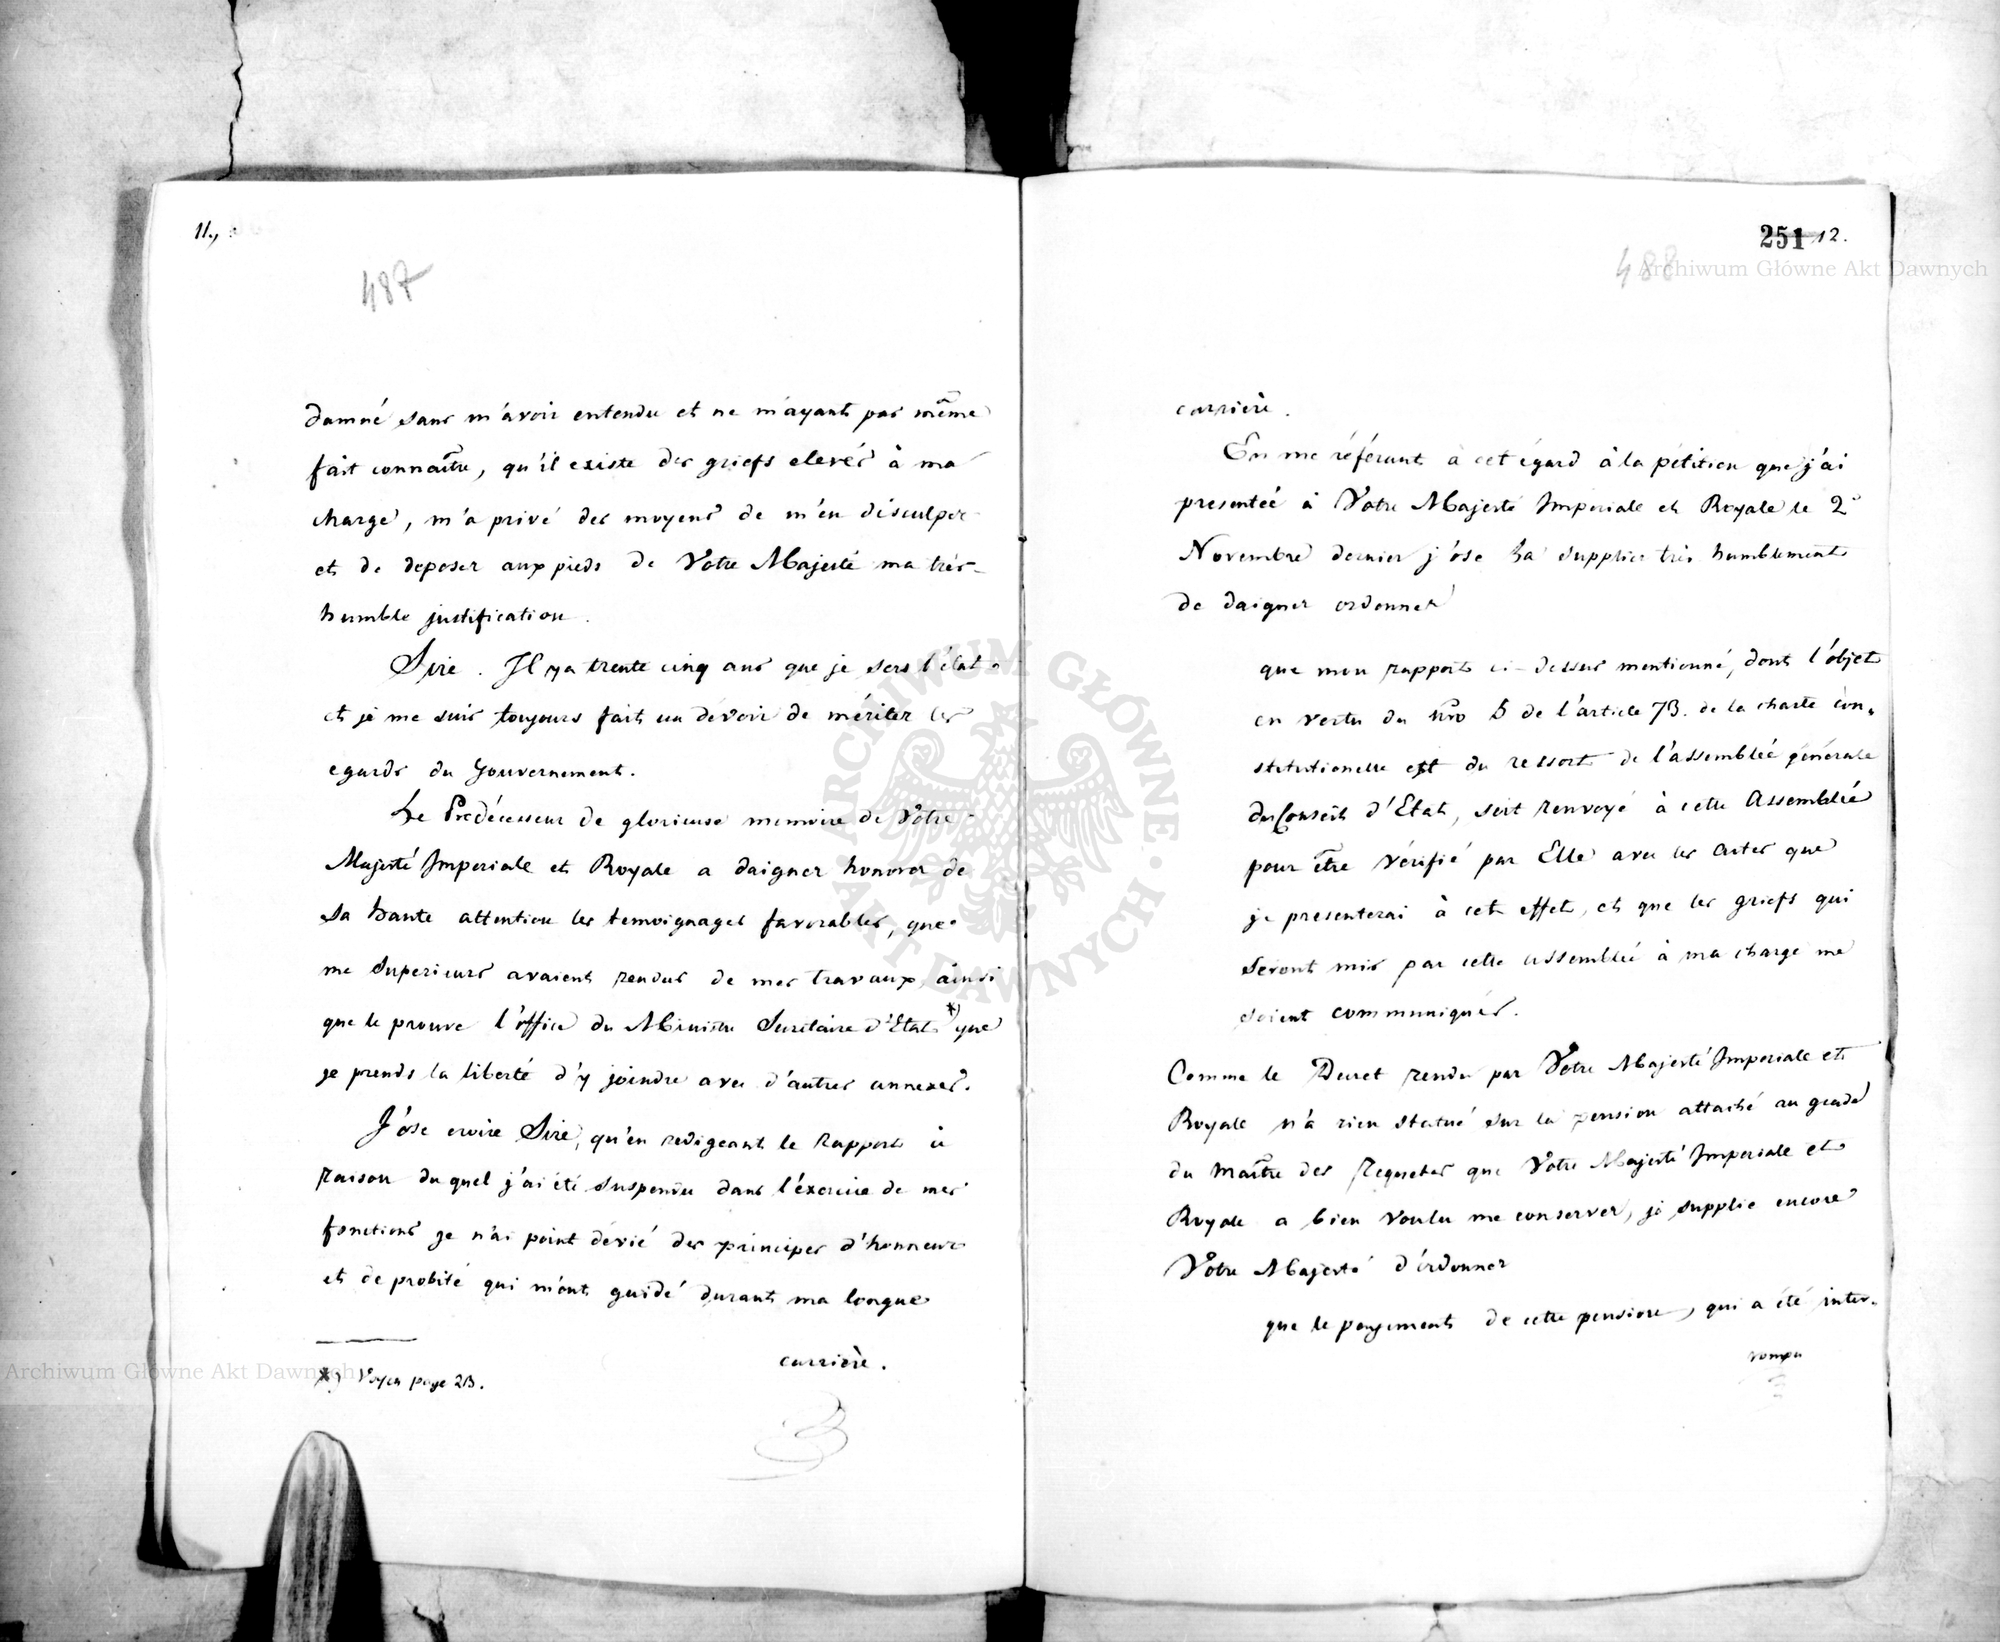 11.
487
damné sans m'avoir entendu et ne m'ayant pas même
fait connaître, qu'il existe des griefs elevés à ma
charge, m'a privé des moyens de m'en disculper
et de deposer aux pieds de Votre Majesté ma très-
humble justification.
Sire. Il y a trente cinq ans que je sers l'état
et je me suis toujours fait un devoir de mériter les
egards du Gouvernement.
Le Prédécesseur de glorieuse memoire de Votre
Majesté Imperiale et Royale a daigner honorer de
sa haute attention les temoignages favorables, que
me Superieurs avaient rendus de mes travaux, ainsi
que le prouve l'office du Ministre Secretaire d'Etat *) que
je prends la liberté d'y joindre avec d'autres annexes.
J'ose croire Sire, qu'en redigeant le Rapport à
raison du quel j'ai été suspendu dans l'éxercice de mes
fonctions je n'ai point dévié des principes d'honneur
et de probité qui m'ont guidé durant ma longue
carrière.
*) Voyez page 23.
251 12.
488
carrière.
En me référant à cet égard à la pétition que j'ai
presentée à Votre Majesté Imperiale et Royale le 2
Novembre dernier j'ose La supplier très humblement
de daigner ordonner
que mon rapport ci-dessus mentionné, dont l'objet
en vertu du nro 5 de l'article 73. de la charte con-
stitutionelle est du ressort de l'assemblée générale
du Conseil d'Etat, soit renvoyé à cette Assemblée
pour être vérifié par Elle avec les Actes que
je presenterai à cet effet, et que les griefs qui
seront mis par cette assemblée à ma charge me
soient communiqués.
Comme le Decret rendu par Votre Majesté Imperiale et
Royale n'a rien statué sur la pension attaché au grade
du Maître des Requetes que Votre Majesté Imperiale et
Royale a bien voulu me conserver, je supplie encore
Votre Majesté d'érdonner
que le payement de cette pension, qui a été inter-
rompu
Archiwum Główne Akt Dawnych
Archiwum Główne Akt Dawnych
ARCHIWUM GŁÓWNE AKT DAWNYCH